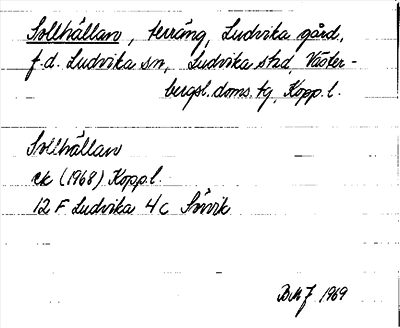 Sollhällan, terräng, Ludvika gård,
f.d. Ludvika sn, Ludvika stad, Väster-
bergsl. doms. tg, Kopp. l.
Sollhällan
ek (1968) Kopp. l.
12 F Ludvika 4 c Snörvik
1969